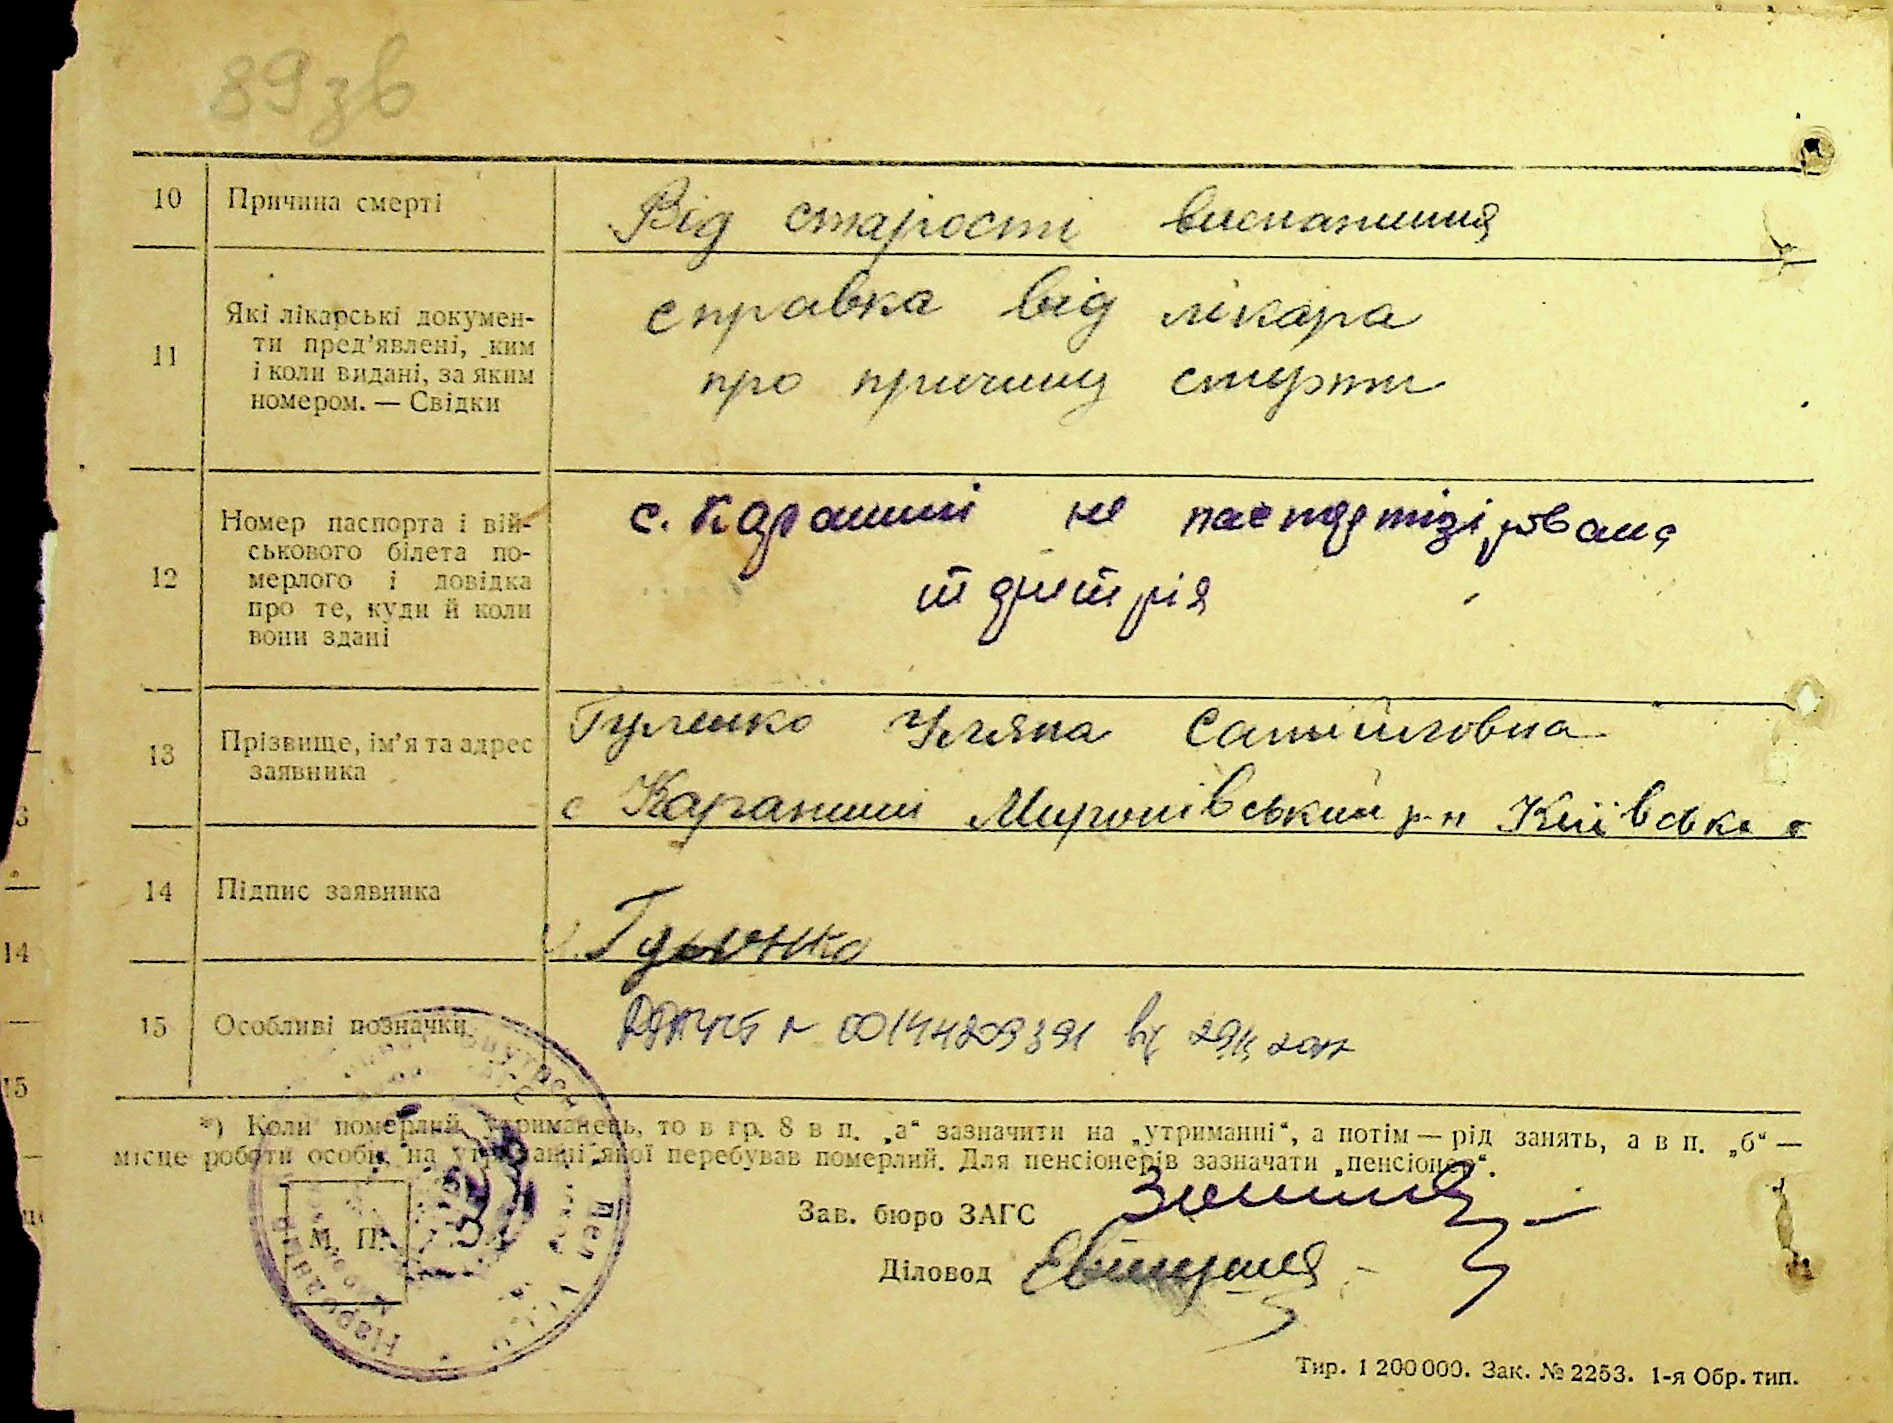 89зв
10 Причина смерті Від старості виснаження
11 Які лікарські докумен-
ти пред'явлені, ким
і коли видані, за яким
номером. — Свідки
справка від лікара
про причину смерти
12 Номер паспорта і вій-
ськового білета по-
мерлого і довідка
про те, куди й коли
вони здані
с. Карапиші не паспортізірована
тдриторія
13 Прізвище, ім'я та адрес
заявника
Гуленко Уляна Самійловна
с Карапиші Миронівський р-н Київська о
14 Підпис заявника
Гуленко
15 Особливі позначки
N 00144209391
*) Коли померлий утриманець, то в гр. 8 в п. „а“ зазначити на „утриманні“, а потім — рід занять, а в п. „б“ —
місце роботи особи, на утриманні якої перебував померлий. Для пенсіонерів зазначати „пенсіонер“.
Зав. бюро ЗАГС
М. П.
Діловод
Тир. 1 200 000. Зак. № 2253. 1-я Обр. тип.